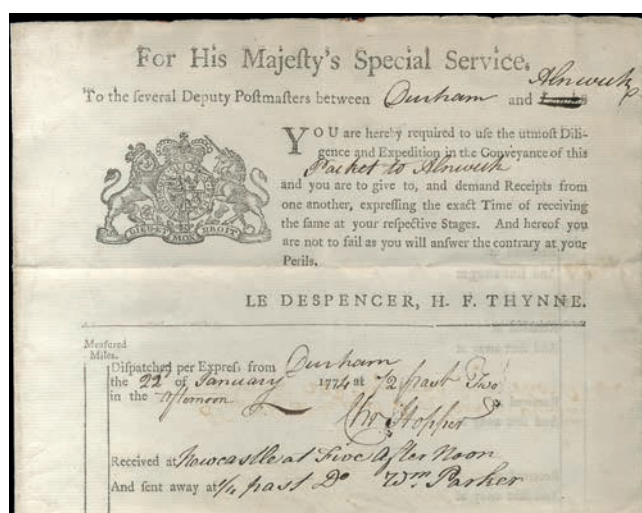 For His Majeſty's Special Service.
To the ſeveral Deputy Poſtmasters between Durham and Alnwick
YOU are hereby required to uſe the utmoſt Dili-
gence and Expedition in the Conveyance of this
Packet to Alnwick
and you are to give to, and demand Receipts from
one another, expreſſing the exact Time of receiving
the ſame at your reſpective Stages. And hereof you
are not to fail as you will anſwer the contrary at your
Perils.
DIEU ET MON DROIT
LE DESPENCER, H. F. THYNNE.
Meaſured
Miles.
Diſpatched per Expreſs from Durham
the 22d of January 1774 at 1/2 past Two
in the afternoon
Chr Hopper
Received at Newcastle at Five After Noon
And ſent away at 1/4 past Do Wm Parker